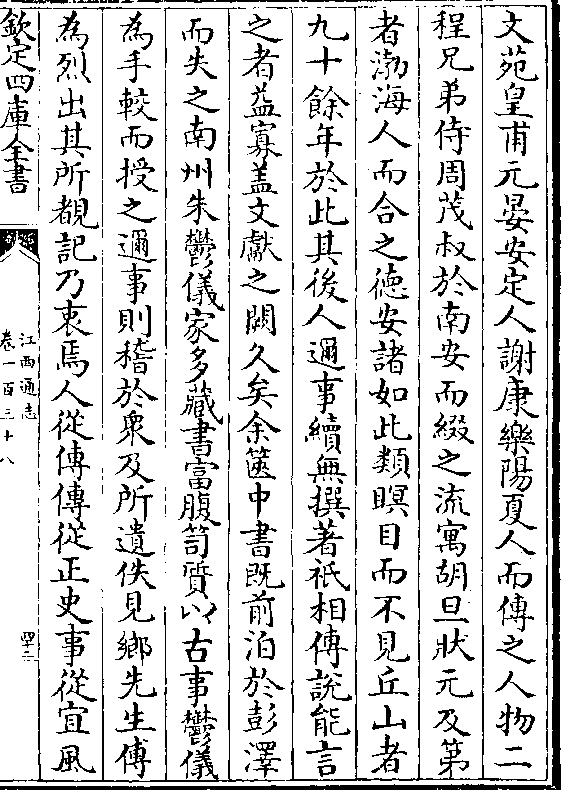 文苑皇甫元晏安定人謝康樂陽夏人而傳之人物二
程兄弟侍周茂叔於南安而綴之流寓胡旦狀元及第
者渤海人而合之德安諸如此類瞑目而不見丘山者
九十餘年於此其後人邇事續無撰著祇相傳說能言
之者益寡盖文獻之闕久矣余篋中書既前泊於彭澤
而失之南州朱鬱儀家多藏書富腹笥質以古事鬱儀
為手較而授之邇事則稽於衆及所遺佚見鄉先生傳
為烈出其所覩記乃衷焉人從傳傳從正史事從宜風
欽定四庫全書
江西通志
卷一百三十八
四十三